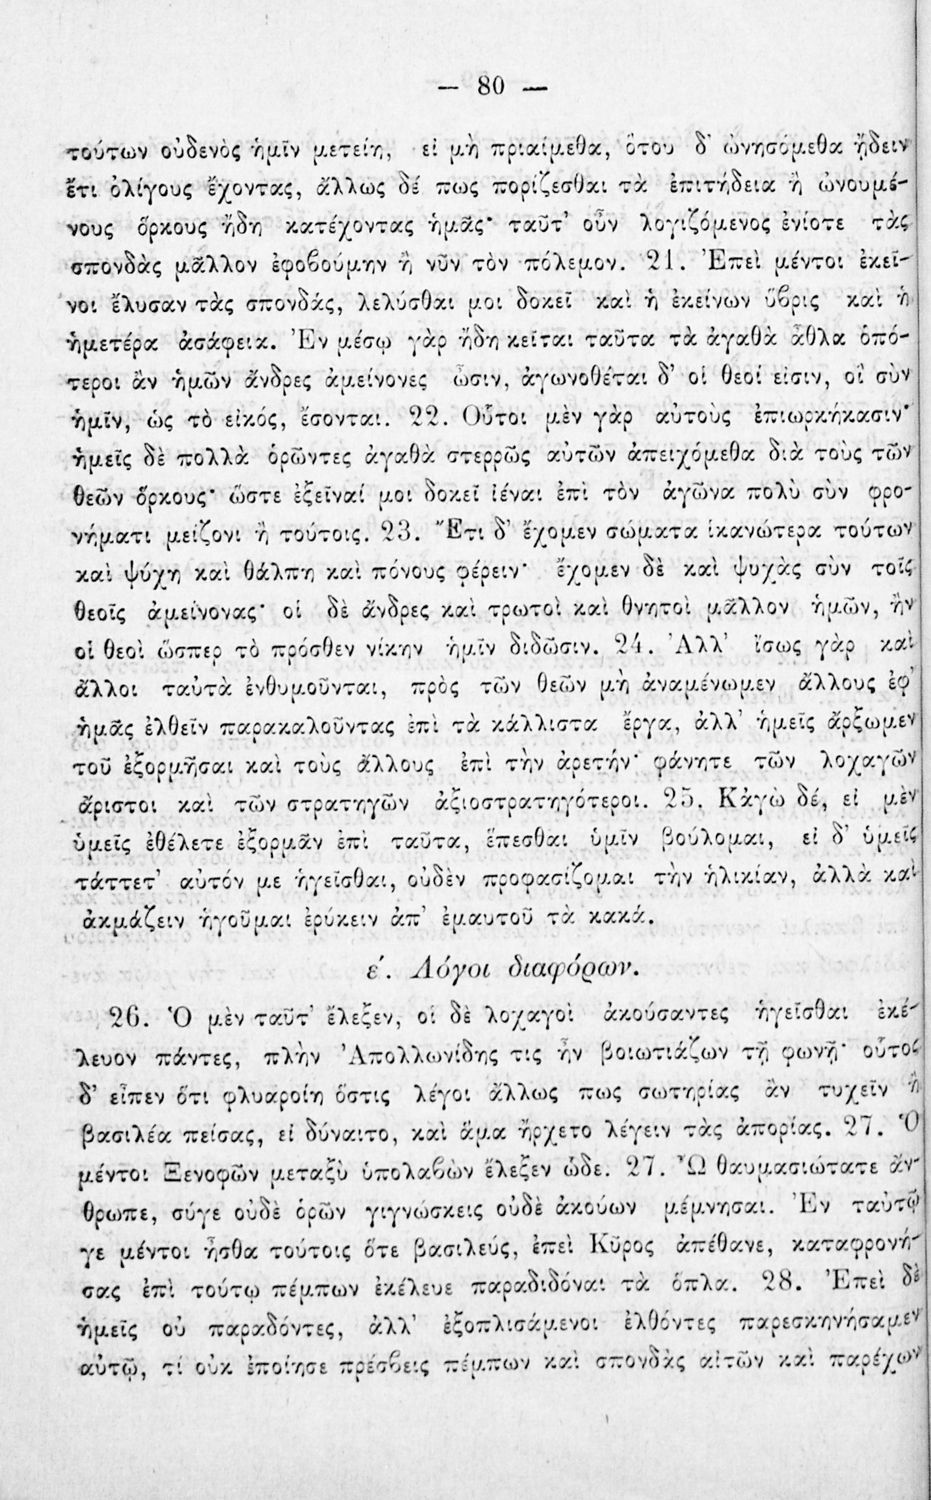 — 80 —
τούτων οὐδενὸς ἡμῖν μετείη, εἰ μὴ πριαίμεθα, ὅτου δ' ὠνησόμεθα ᾔδειν
ἔτι ὀλίγους ἔχοντας, ἄλλως δέ πως πορίζεσθαι τὰ ἐπιτήδεια ἢ ὠνουμέ-
νους ὅρκους ἤδη κατέχοντας ἡμᾶς· ταῦτ' οὖν λογιζόμενος ἐνίοτε τὰς
σπονδὰς μᾶλλον ἐφοβούμην ἢ νῦν τὸν πόλεμον. 21. Ἐπεὶ μέντοι ἐκεῖ-
νοι ἔλυσαν τὰς σπονδάς, λελύσθαι μοι δοκεῖ καὶ ἡ ἐκείνων ὕβρις καὶ ἡ
ἡμετέρα ἀσάφεια. Ἐν μέσῳ γὰρ ἤδη κεῖται ταῦτα τὰ ἀγαθὰ ἆθλα ὁπό-
τεροι ἂν ἡμῶν ἄνδρες ἀμείνονες ὦσιν, ἀγωνοθέται δ' οἱ θεοί εἰσιν, οἳ σὺν
ἡμῖν, ὡς τὸ εἰκός, ἔσονται. 22. Οὗτοι μὲν γὰρ αὐτοὺς ἐπιωρκήκασιν·
ἡμεῖς δὲ πολλὰ ὁρῶντες ἀγαθὰ στερρῶς αὐτῶν ἀπειχόμεθα διὰ τοὺς τῶν
θεῶν ὅρκους· ὥστε ἐξεῖναί μοι δοκεῖ ἰέναι ἐπὶ τὸν ἀγῶνα πολὺ σὺν φρο-
νήματι μείζονι ἢ τούτοις. 23. Ἔτι δ' ἔχομεν σώματα ἱκανώτερα τούτων
καὶ ψύχη καὶ θάλπη καὶ πόνους φέρειν· ἔχομεν δὲ καὶ ψυχὰς σὺν τοῖς
θεοῖς ἀμείνονας· οἱ δὲ ἄνδρες καὶ τρωτοὶ καὶ θνητοὶ μᾶλλον ἡμῶν, ἢν
οἱ θεοὶ ὥσπερ τὸ πρόσθεν νίκην ἡμῖν διδῶσιν. 24. Ἀλλ' ἴσως γὰρ καὶ
ἄλλοι ταὐτὰ ἐνθυμοῦνται, πρὸς τῶν θεῶν μὴ ἀναμένωμεν ἄλλους ἐφ'
ἡμᾶς ἐλθεῖν παρακαλοῦντας ἐπὶ τὰ κάλλιστα ἔργα, ἀλλ' ἡμεῖς ἄρξωμεν
τοῦ ἐξορμῆσαι καὶ τοὺς ἄλλους ἐπὶ τὴν ἀρετήν· φάνητε τῶν λοχαγῶν
ἄριστοι καὶ τῶν στρατηγῶν ἀξιοστρατηγότεροι. 25. Κἀγὼ δέ, εἰ μὲν
ὑμεῖς ἐθέλετε ἐξορμᾶν ἐπὶ ταῦτα, ἕπεσθαι ὑμῖν βούλομαι, εἰ δ' ὑμεῖς
τάττετ' αὐτόν με ἡγεῖσθαι, οὐδὲν προφασίζομαι τὴν ἡλικίαν, ἀλλὰ καὶ
ἀκμάζειν ἡγοῦμαι ἐρύκειν ἀπ' ἐμαυτοῦ τὰ κακά.
ε΄. Λόγοι διαφόρων.
26. Ὁ μὲν ταῦτ' ἔλεξεν, οἱ δὲ λοχαγοὶ ἀκούσαντες ἡγεῖσθαι ἐκέ-
λευον πάντες, πλὴν Ἀπολλωνίδης τις ἦν βοιωτιάζων τῇ φωνῇ· οὗτος
δ' εἶπεν ὅτι φλυαροίη ὅστις λέγοι ἄλλως πως σωτηρίας ἂν τυχεῖν ἢ
βασιλέα πείσας, εἰ δύναιτο, καὶ ἅμα ἤρχετο λέγειν τὰς ἀπορίας. 27. Ὁ
μέντοι Ξενοφῶν μεταξὺ ὑπολαβὼν ἔλεξεν ὧδε. 27. Ὦ θαυμασιώτατε ἄν-
θρωπε, σύγε οὐδὲ ὁρῶν γιγνώσκεις οὐδὲ ἀκούων μέμνησαι. Ἐν ταὐτῷ
γε μέντοι ἦσθα τούτοις ὅτε βασιλεύς, ἐπεὶ Κῦρος ἀπέθανε, καταφρονή-
σας ἐπὶ τούτῳ πέμπων ἐκέλευε παραδιδόναι τὰ ὅπλα. 28. Ἐπεὶ δὲ
ἡμεῖς οὐ παραδόντες, ἀλλ' ἐξοπλισάμενοι ἐλθόντες παρεσκηνήσαμεν
αὐτῷ, τί οὐκ ἐποίησε πρέσβεις πέμπων καὶ σπονδὰς αἰτῶν καὶ παρέχων